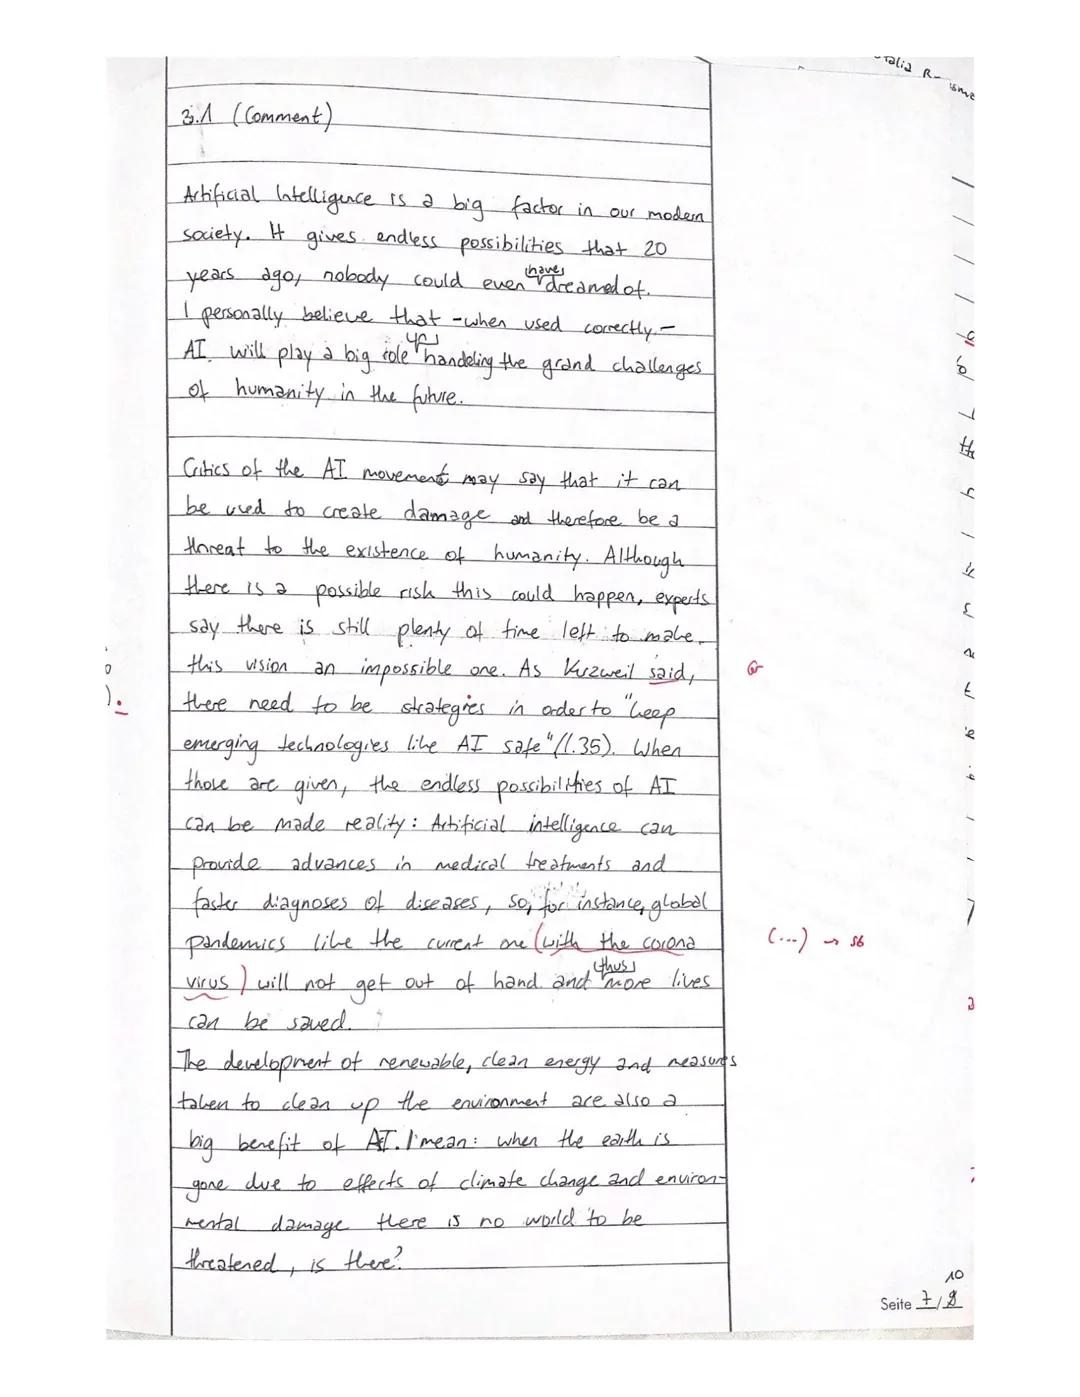 3.1 (Comment)
Artificial Intelligence is a big factor in our modern
society. It gives endless possibilities that 20
years ago, nobody could even (have) dreamed of.
I personally believe that -when used correctly-
AI will play a big role handeling the grand challenges
of humanity in the future.
Critics of the AI movement may say that it can
be used to create damage and therefore be a
threat to the existence of humanity. Although
there is a possible risk this could happen, experts
say there is still plenty of time left to make
this vision an impossible one. As Kurzweil said,
there need to be strategies in order to "keep
emerging technologies like AI safe" (l.35). When
those are given, the endless possibilities of AI
can be made reality: Artificial intelligence can
provide advances in medical treatments and
faster diagnoses of diseases, so, for instance, global
pandemics like the current one (with the corona
(...) → sb
virus) will not get out of hand and (thus) more lives
can be saved.
The development of renewable, clean energy and measures
taken to clean up the environment are also a
big benefit of AI. I mean: when the earth is
gone due to effects of climate change and environ-
mental damage there is no world to be
threatened, is there?
10
Seite 7/9